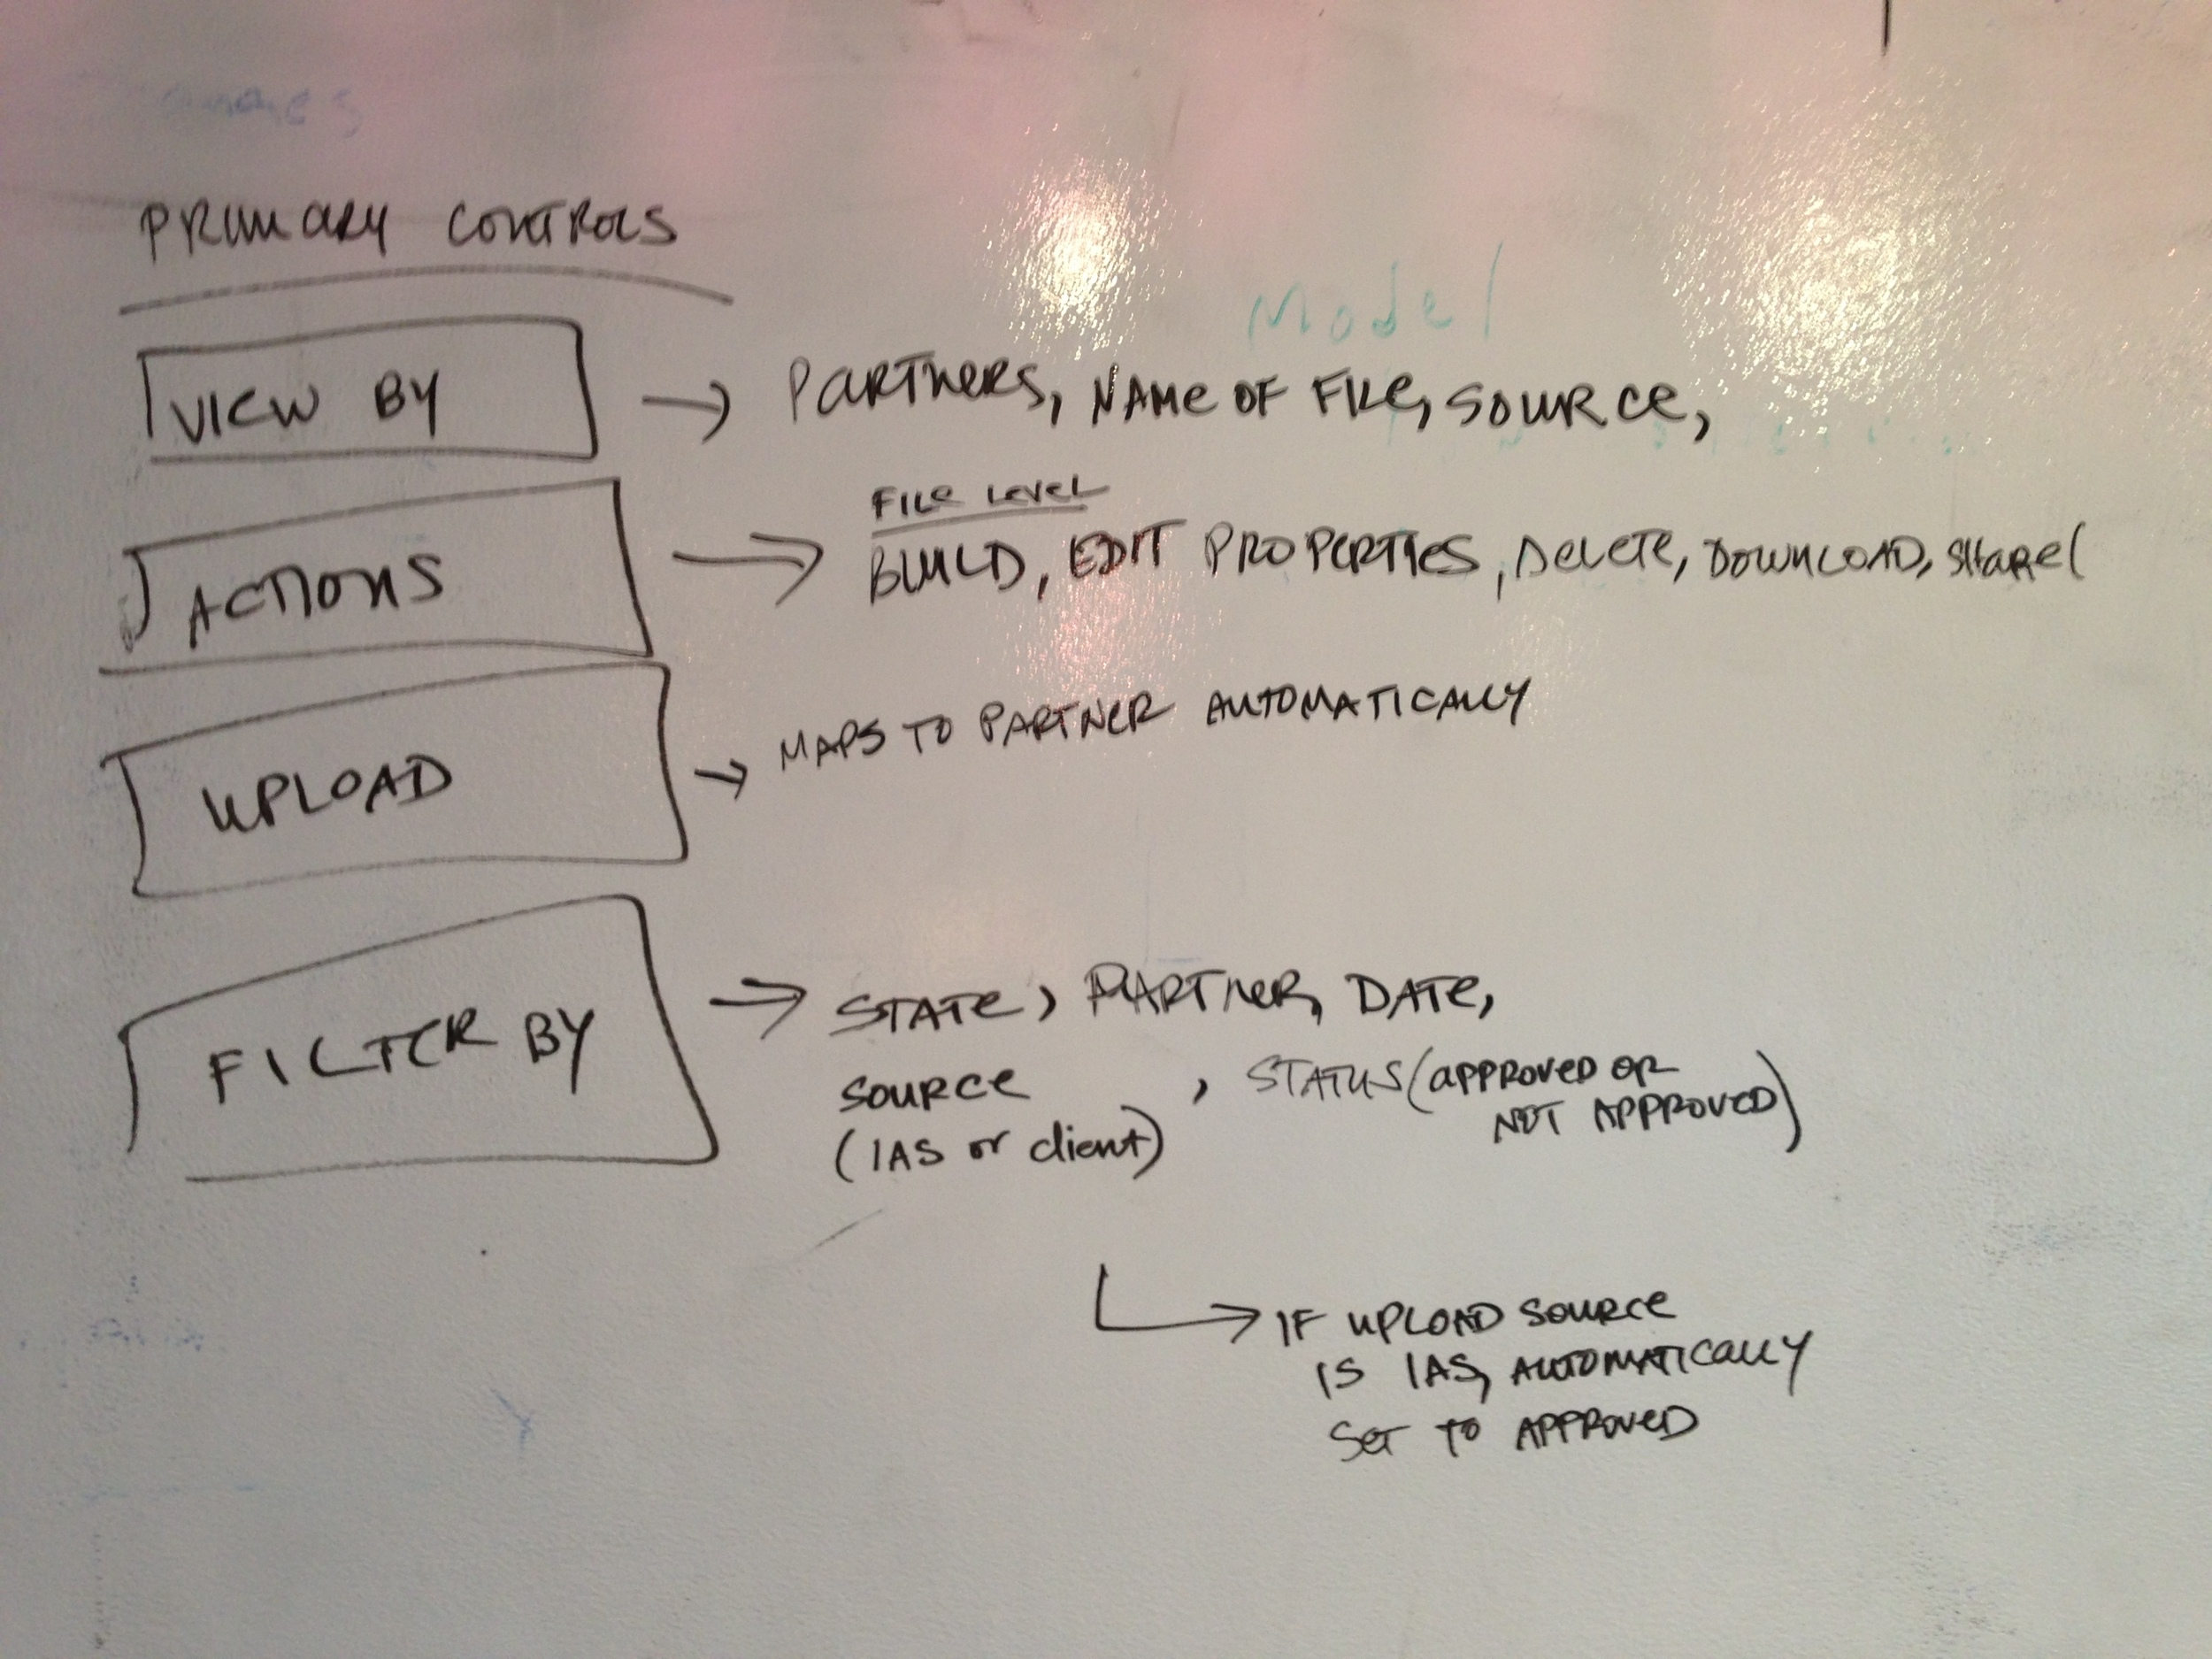 PRIMARY CONTROLS
Model
VIEW BY → PARTNERS, NAME OF FILE, SOURCE,
FILE LEVEL
ACTIONS → BUILD, EDIT PROPERTIES, DELETE, DOWNLOAD, SHARE(
UPLOAD → MAPS TO PARTNER AUTOMATICALLY
FILTER BY → STATE, PARTNER, DATE,
SOURCE , STATUS (APPROVED OR
(IAS or client) NOT APPROVED)
→ IF UPLOAD SOURCE
IS IAS, AUTOMATICALLY
SET TO APPROVED